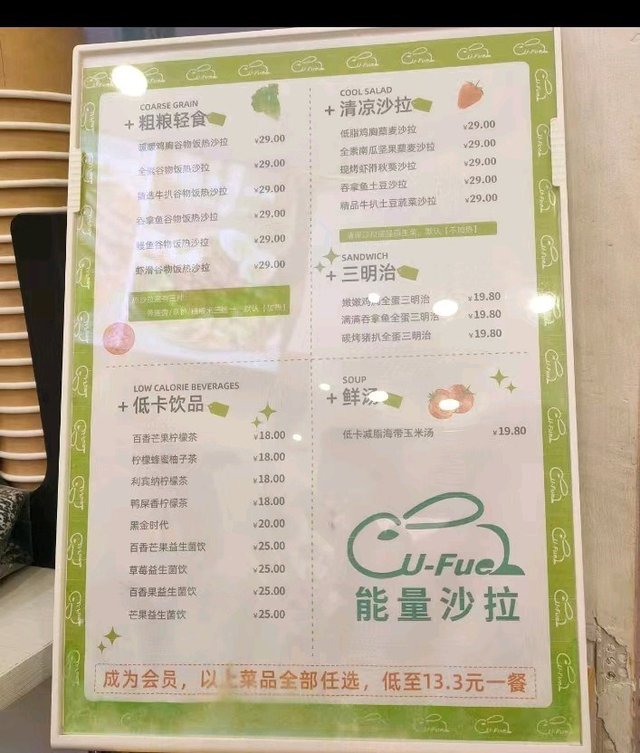 COARSE GRAIN
+ 粗粮轻食
暖暖鸡胸谷物饭热沙拉 ¥29.00
全素谷物饭热沙拉 ¥29.00
精选牛扒谷物饭热沙拉 ¥29.00
吞拿鱼谷物饭热沙拉 ¥29.00
鳗鱼谷物饭热沙拉 ¥29.00
虾滑谷物饭热沙拉 ¥29.00
COOL SALAD
+ 清凉沙拉
低脂鸡胸藜麦沙拉 ¥29.00
全素南瓜坚果藜麦沙拉 ¥29.00
现烤虾滑秋葵沙拉 ¥29.00
吞拿鱼土豆沙拉 ¥29.00
精品牛扒土豆蔬菜沙拉 ¥29.00
SANDWICH
+ 三明治
嫩嫩鸡胸全蛋三明治 ¥19.80
满满吞拿鱼全蛋三明治 ¥19.80
碳烤猪扒全蛋三明治 ¥19.80
LOW CALORIE BEVERAGES
+ 低卡饮品
百香芒果柠檬茶 ¥18.00
柠檬蜂蜜柚子茶 ¥18.00
利宾纳柠檬茶 ¥18.00
鸭屎香柠檬茶 ¥18.00
黑金时代 ¥20.00
百香芒果益生菌饮 ¥25.00
草莓益生菌饮 ¥25.00
百香果益生菌饮 ¥25.00
芒果益生菌饮 ¥25.00
SOUP
+ 鲜汤
低卡减脂海带玉米汤 ¥19.80
U-Fuel
能量沙拉
成为会员，以上菜品全部任选，低至13.3元一餐